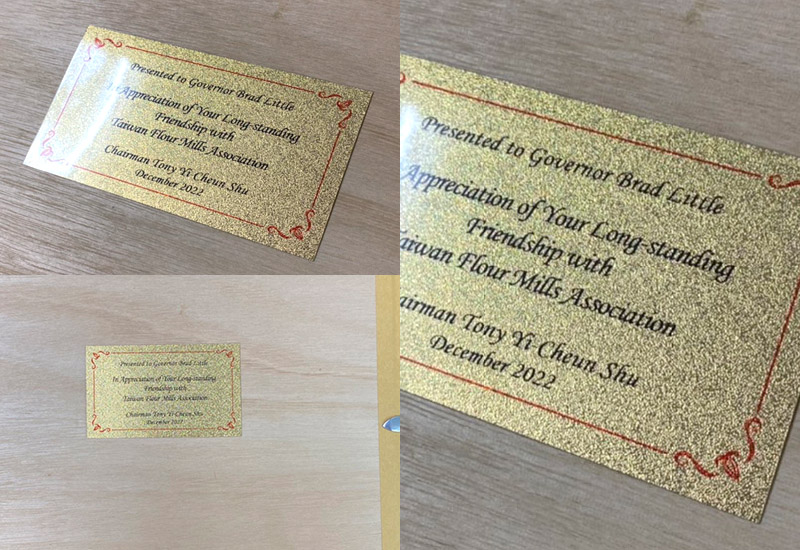 Presented to Governor Brad Little
In Appreciation of Your Long-standing
Friendship with
Taiwan Flour Mills Association
Chairman Tony Yi Cheun Shu
December 2022
Presented to Governor Brad Little
Appreciation of Your Long-standing
Friendship with
Taiwan Flour Mills Association
Chairman Tony Yi Cheun Shu
December 2022
Presented to Governor Brad Little
In Appreciation of Your Long-standing
Friendship with
Taiwan Flour Mills Association
Chairman Tony Yi Cheun Shu
December 2022